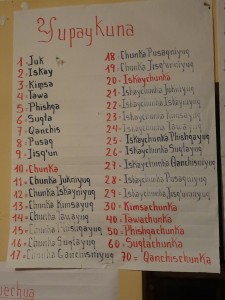 Yupaykuna
1 = Juk
2 = Iskay
3 = Kimsa
4 = Tawa
5 = Phishqa
6 = Suqta
7 = Qanchis
8 = Pusaq
9 = Jisq'un
10 = Chunka
11 = Chunka Jukniyuq
12 = Chunka Iskayniyuq
13 = Chunka Kimsayuq
14 = Chunka Tawayuq
15 = Chunka Phishqayuq
16 = Chunka Suqtayuq
17 = Chunka Qanchisniyuq
18 = Chunka Pusaqniyuq
19 = Chunka Jisq'unniyuq
20 = Iskaychunka
21 = Iskaychunka Jukniyuq
22 = Iskaychunka Iskayniyuq
23 = Iskaychunka Kimsayuq
24 = Iskaychunka Tawayuq
25 = Iskaychunka Phishqayuq
26 = Iskaychunka Suqtayuq
27 = Iskaychunka Qanchisniyuq
28 = Iskaychunka Pusaqniyuq
29 = Iskaychunka Jisq'unniyuq
30 = Kimsachunka
40 = Tawachunka
50 = Phishqachunka
60 = Suqtachunka
70 = Qanchischunka